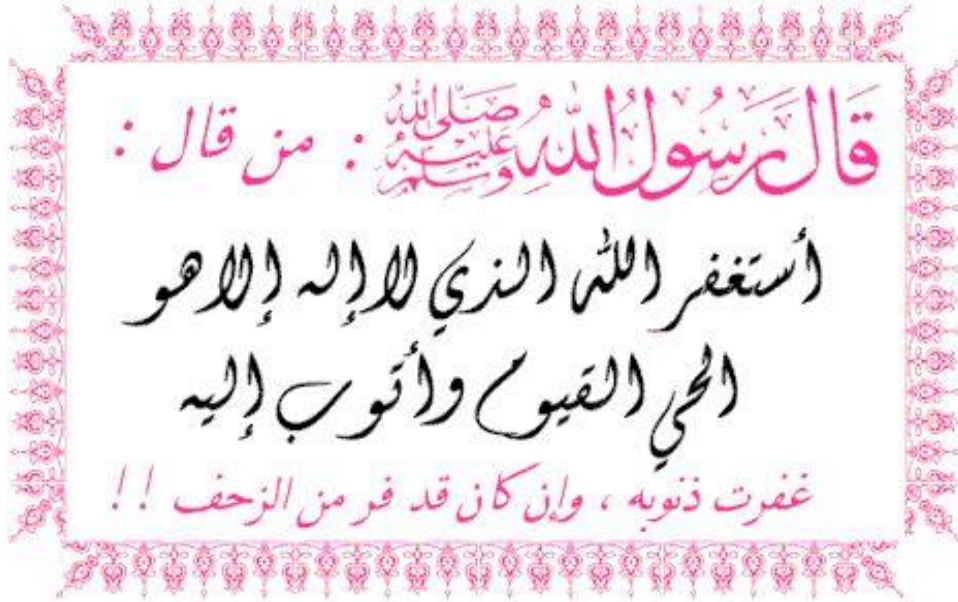 قَالَ رَسُولُ اللهِ صَلَّى اللهُ عَلَيْهِ وَسَلَّم : من قال :
أستغفر الله الذي لا إله إلا هو
الحي القيوم وأتوب إليه
غفرت ذنوبه ، وإن كان قد فر من الزحف ! !